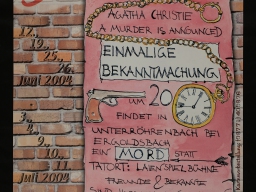 AGATHA CHRISTIE
A MURDER IS ANNOUNCED
EINMALIGE
BEKANNTMACHUNG
UM 20
FINDET IN
UNTERRÖHRENBACH BEI
ERGOLDSBACH
EIN MORD STATT
TATORT: LAIENSPIELBÜHNE
FREUNDE & BEKANNTE
12.,
19.,
25.,
26.
Juni 2004
3.,
4.,
9.,
10.,
11.
Juli 2004